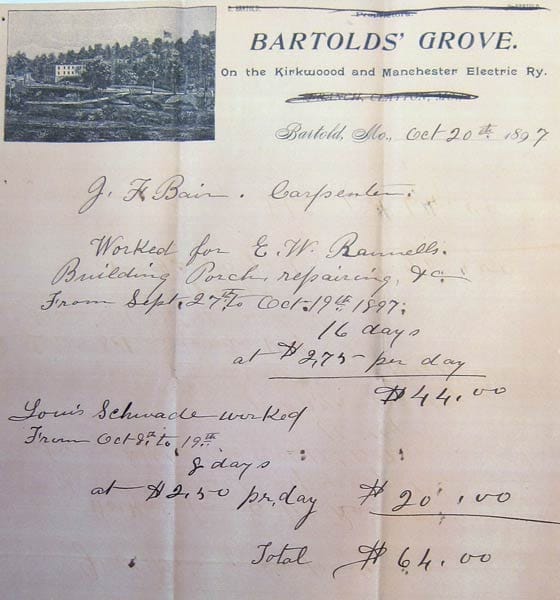 E. BARTOLD.
Proprietors.
BARTOLDS' GROVE.
On the Kirkwoood and Manchester Electric Ry.
BRANCH, CLAYTON, MO.
Bartold, Mo., Oct 20th 1897
J. F. Bair. Carpenter.
Worked for E. W. Rannells.
Building Porch, repairing, &c.
From Sept. 27th to Oct. 19th 1897.
16 days
at $2,75 per day
$44.00
Louis Schwade worked
From Oct 9th, to 19th
8 days
at $2,50 pr, day $20.00
Total $64.00